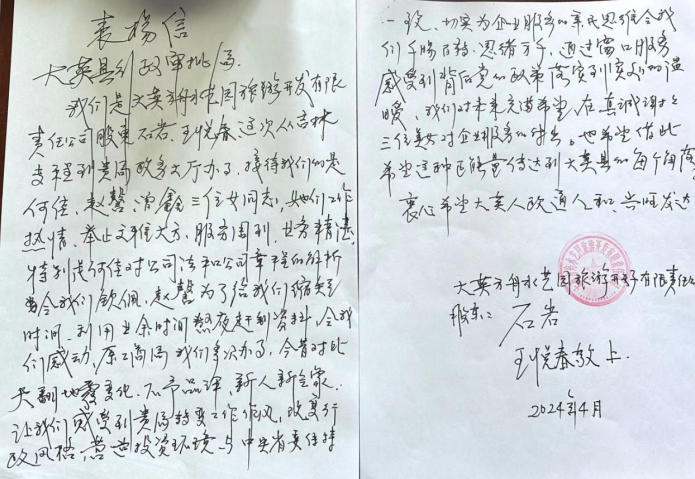 表扬信
大英县行政审批局:
我们是大英方舟水艺园旅游开发有限
责任公司股东石岩、王悦春这次从吉林
专程到贵局政务大厅办事,接待我们的是
何佳、赵馨、曾鑫三位女同志,她们工作
热情、举止文雅大方、服务周到、业务精湛,
特别是何佳对公司法和公司章程的解析
令我们钦佩,赵馨为了给我们缩短
时间、利用业余时间熬夜赶制资料,令我
们感动,原工商局我们多次办事,今昔对比
天翻地覆变化,不可品评,新人新气象,
让我们感受到贵局转变工作作风,改变行
政风格,营造投资环境与中央省委保持
一致、切实为企业服务和军民思维令我
们千肠百转、思绪万千,通过窗口服务
感受到背后党的政策落实到实处的温
暖,我们对未来充满希望,在真诚谢谢
三位美女对企业服务的付出。也希望借此
希望这种正能量传达到大英县的每个角落
衷心希望大英人政通人和、兴旺发达
大英方舟水艺园旅游开发有限责任公司
股东:石岩
王悦春敬上.
2024年4月